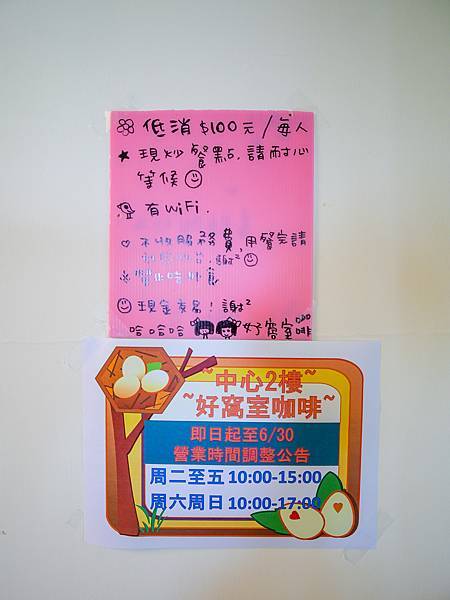 低消$100元/每人
★現炒餐點,請耐心
等候
有WiFi.
♡不收服務費,用餐完請
謝²
現金交易!謝²
哈哈哈 好窩室咖啡
~中心2樓~
~好窩室咖啡~
即日起至6/30
營業時間調整公告
周二至五 10:00-15:00
周六周日 10:00-17:00